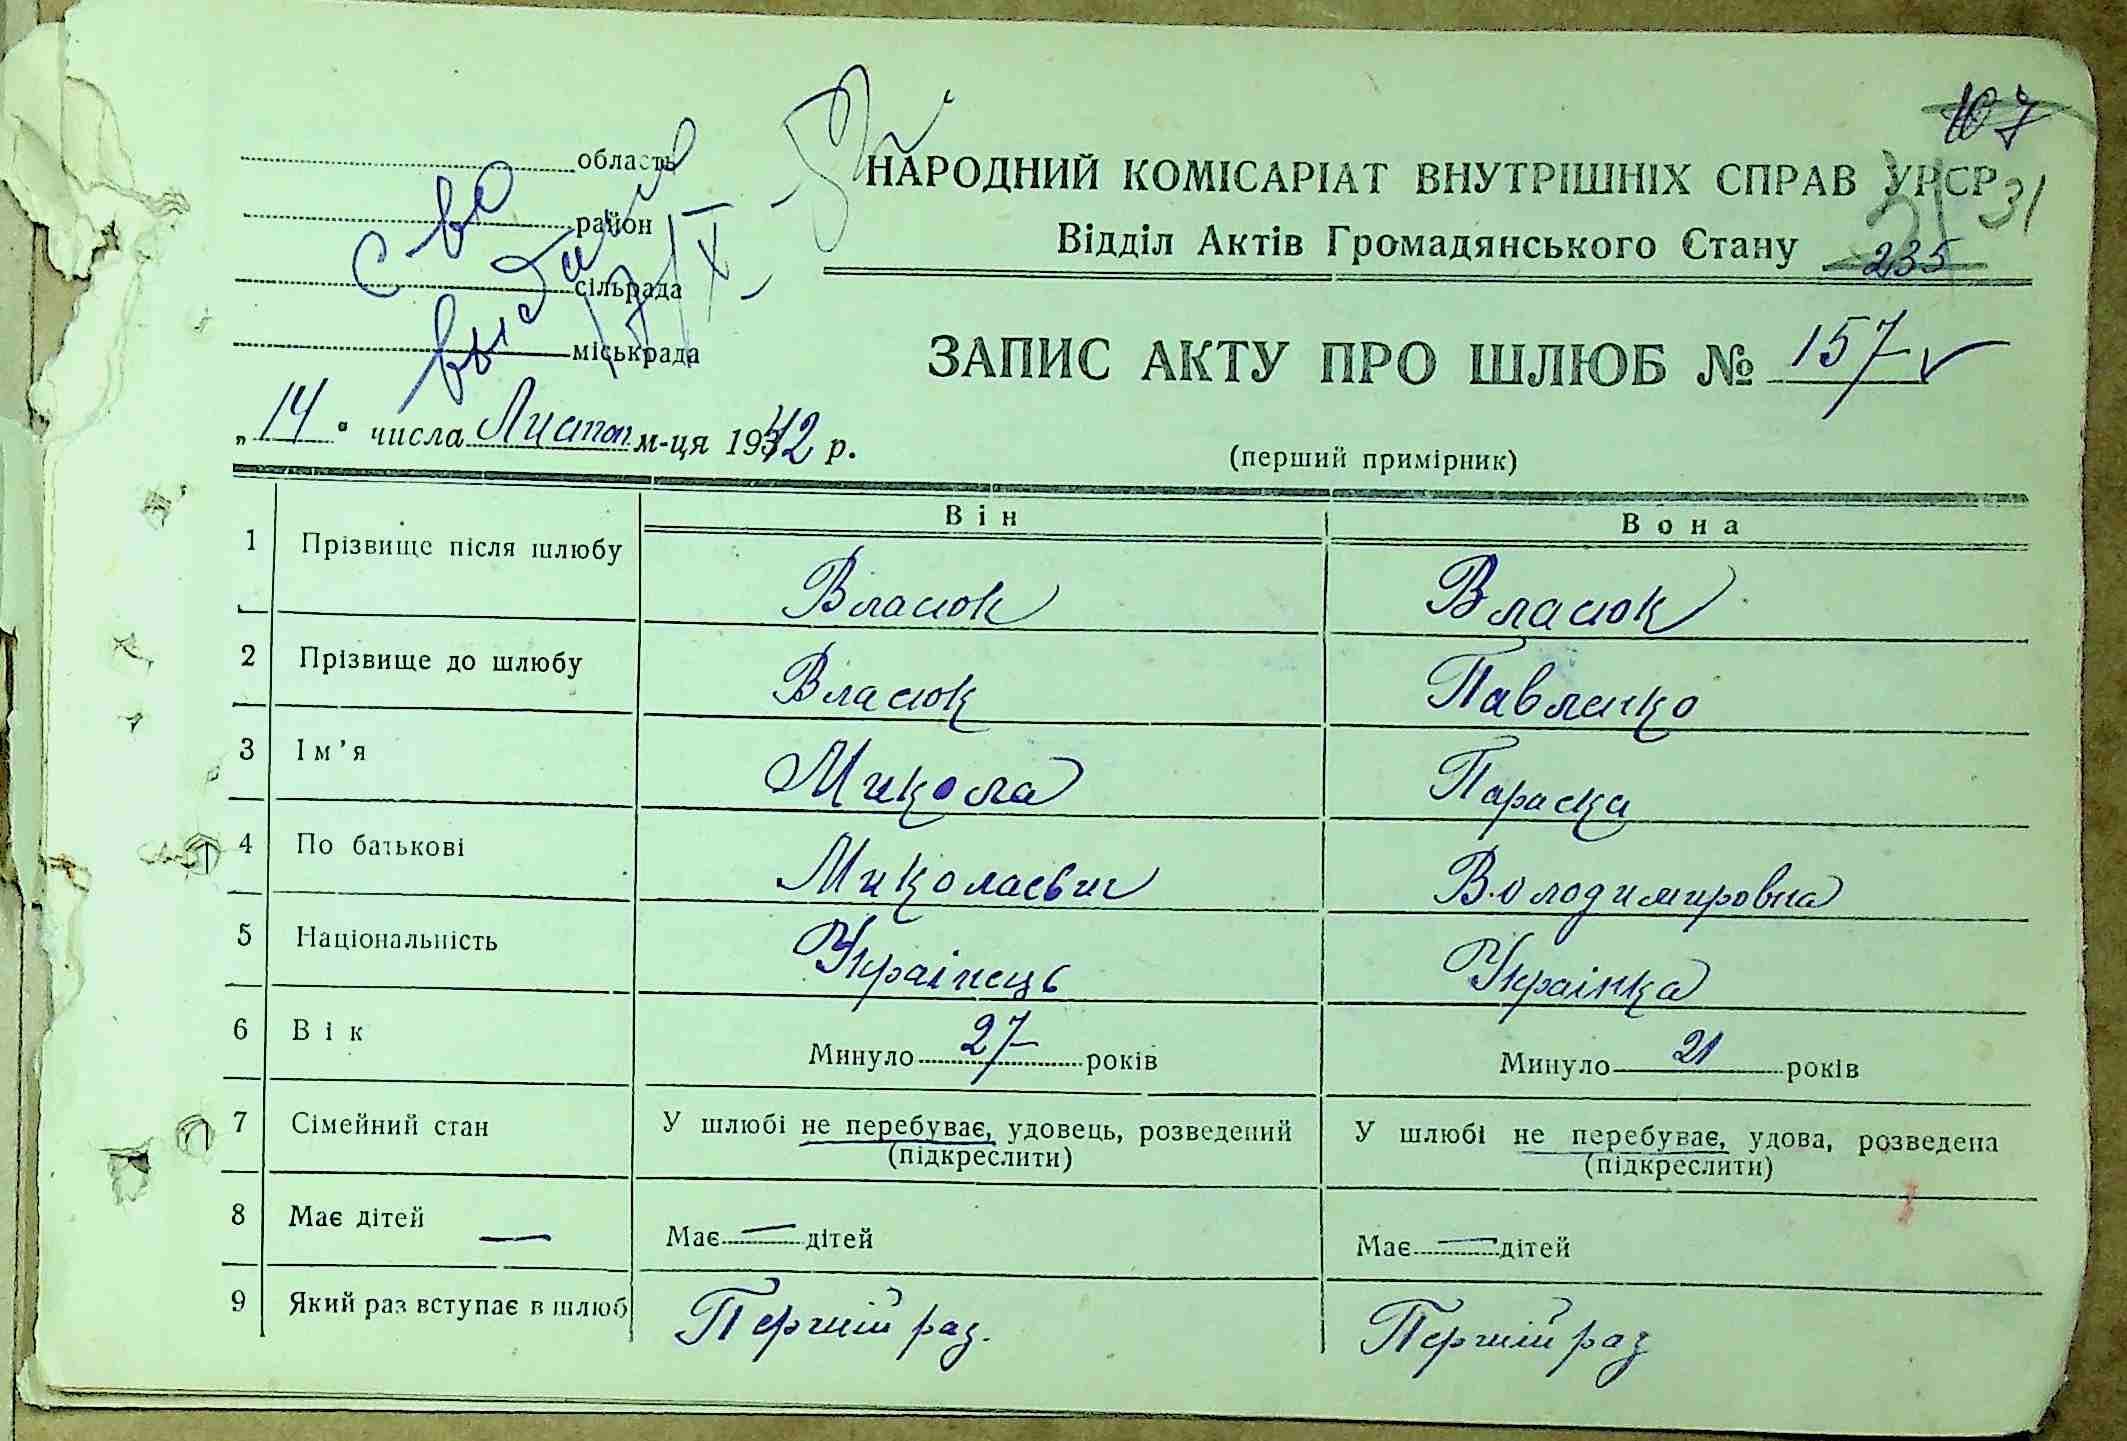 107
область
НАРОДНИЙ КОМІСАРІАТ ВНУТРІШНІХ СПРАВ УРСР
31
район
Відділ Актів Громадянського Стану
235
сільрада
міськрада
ЗАПИС АКТУ ПРО ШЛЮБ № 157
„14“ числа Листоп м-ця 1942 р.
(перший примірник)
Він Вона
1 Прізвище після шлюбу Власюк Власюк
2 Прізвище до шлюбу Власюк Павленко
3 Ім’я Микола Параска
4 По батькові Миколаєвич Володимировна
5 Національність Українець Українка
6 Вік Минуло 27 років Минуло 21 років
7 Сімейний стан У шлюбі не перебуває, удовець, розведений У шлюбі не перебуває, удова, розведена
(підкреслити) (підкреслити)
8 Має дітей — Має — дітей Має — дітей
9 Який раз вступає в шлюб Перший раз. Перший раз